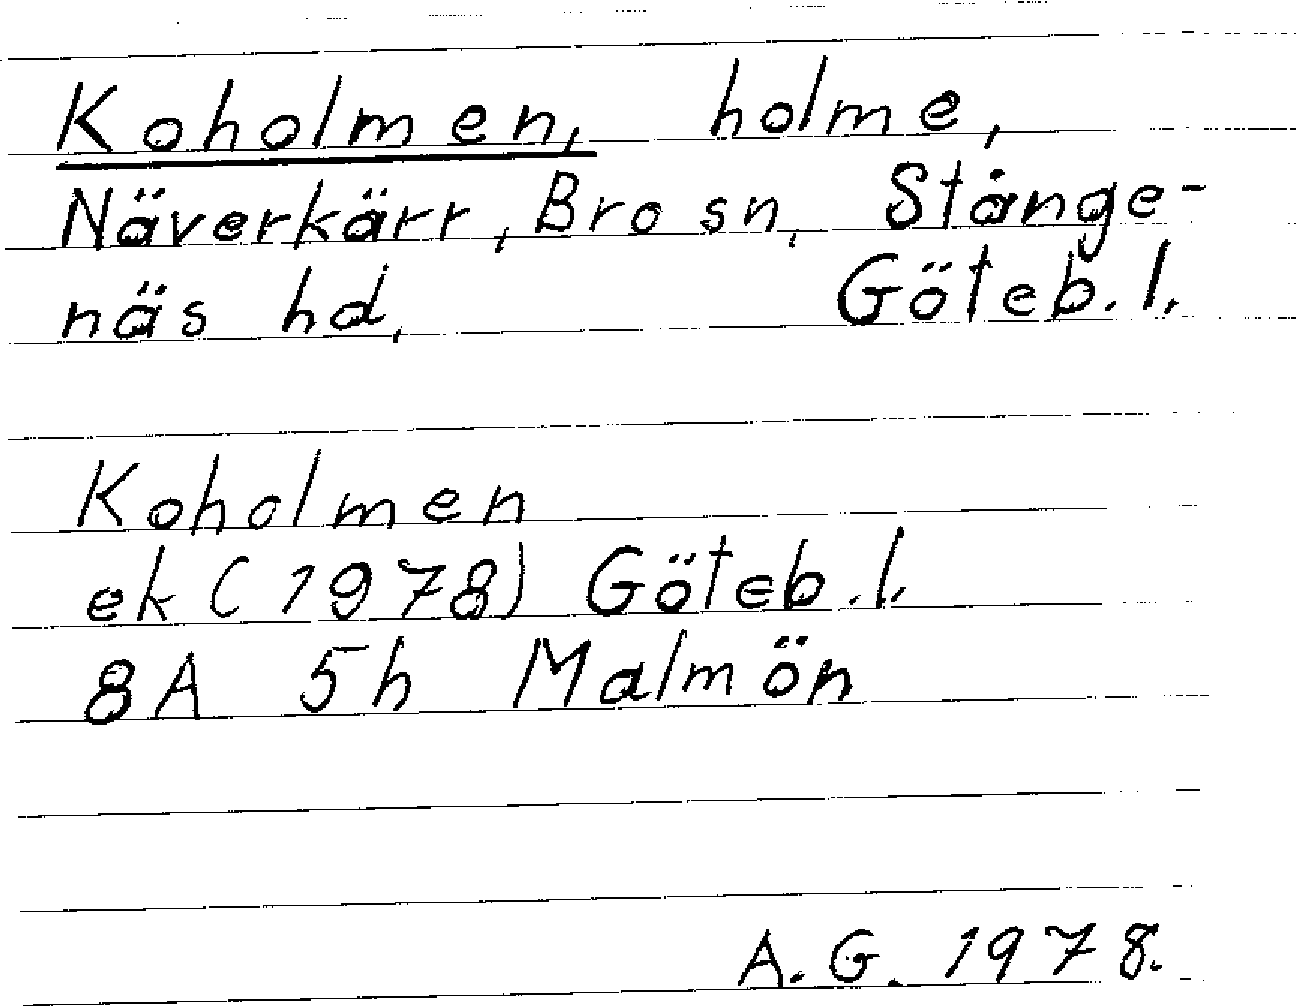 Koholmen, holme,
Näverkärr, Bro sn, Stånge-
näs hd, Göteb. l.
Koholmen
ek (1978) Göteb. l.
8A 5h Malmön
A. G. 1978.